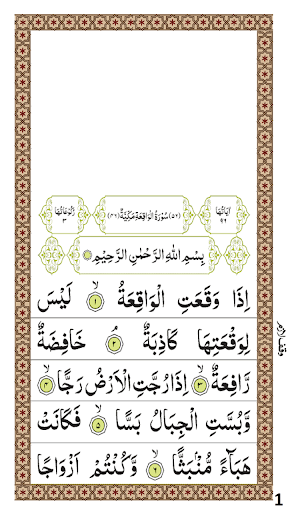 اٰيَاتُهَا ٩٦ (٥٦) سُوْرَةُ الْوَاقِعَةِ مَكِّيَّةٌ (٤٦) رُكُوْعَاتُهَا ٣
بِسْمِ اللهِ الرَّحْمٰنِ الرَّحِيْمِ
اِذَا وَقَعَتِ الْوَاقِعَةُ ۙ‏﴿۱﴾ لَيْسَ
لِوَقْعَتِهَا كَاذِبَةٌ ۘ‏﴿۲﴾ خَافِضَةٌ
رَّافِعَةٌ ۙ‏﴿۳﴾ اِذَا رُجَّتِ الْاَرْضُ رَجًّا ۙ‏﴿۴﴾
وَّبُسَّتِ الْجِبَالُ بَسًّا ۙ‏﴿۵﴾ فَكَانَتْ
هَبَآءً مُّنْۢبَثًّا ۙ‏﴿۶﴾ وَّكُنْتُمْ اَزْوَاجًا
1